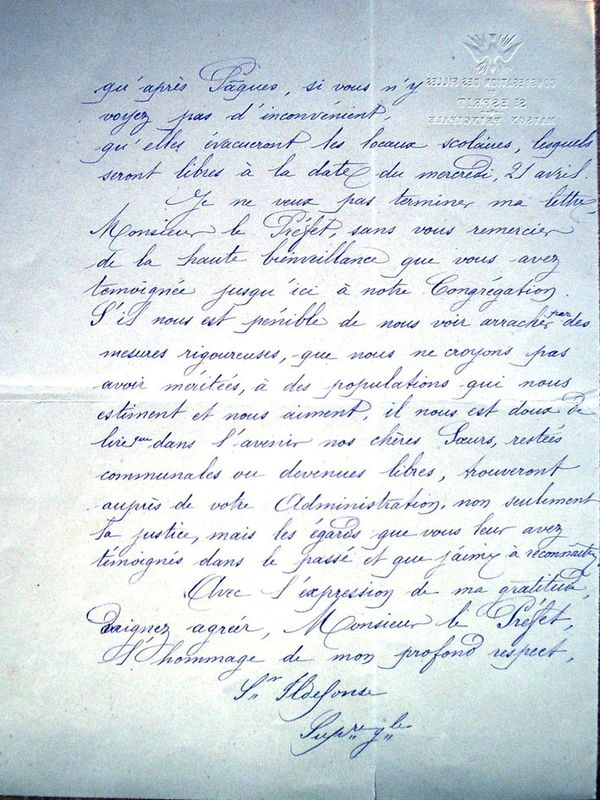 CONGREGATION DES FILLES
St ESPRIT
MAISON PRINCIPALE
qu'après Pâques, si vous n'y
voyez pas d'inconvénient,
qu'elles évacueront les locaux scolaires, lesquels
seront libres à la date du mercredi, 21 avril.
Je ne veux pas terminer ma lettre,
Monsieur le Préfet, sans vous remercier
de la haute bienveillance que vous avez
témoignée jusqu'ici à notre Congrégation.
S'il nous est pénible de nous voir arracher par des
mesures rigoureuses, que nous ne croyons pas
avoir méritées, à des populations qui nous
estiment et nous aiment, il nous est doux de
lire que dans l'avenir nos chères Sœurs, restées
communales ou devenues libres, trouveront
auprès de votre Administration, non seulement
la justice, mais les égards que vous leur avez
témoignés dans le passé et que j'aime à reconnaître.
Avec l'expression de ma gratitude,
daignez agréer, Monsieur le Préfet,
l'hommage de mon profond respect,
Sr Ildefonse
Supre gle